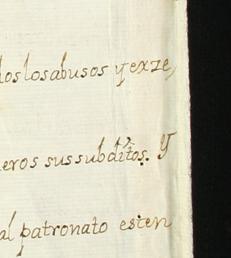 los losabusos y exze,
eros sus subditos. Y
al patronato esten